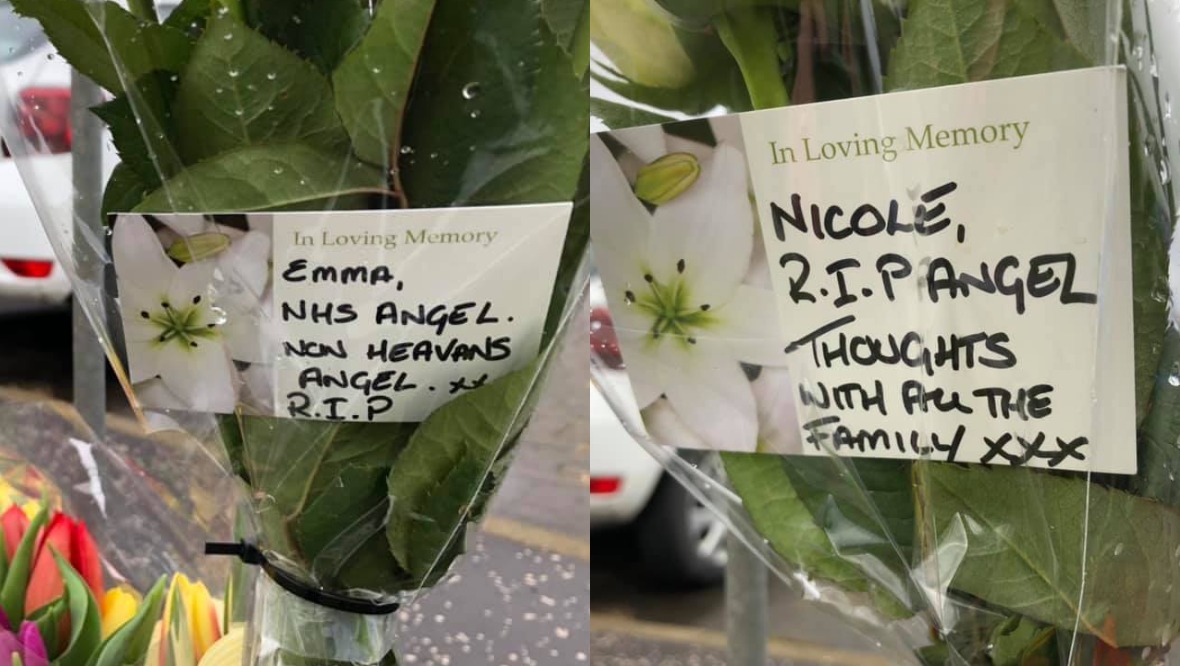 In Loving Memory
EMMA,
NHS ANGEL.
NON HEAVANS
ANGEL. xx
R.I.P
In Loving Memory
NICOLE,
R.I.P ANGEL
THOUGHTS
WITH ALL THE
FAMILY XXX